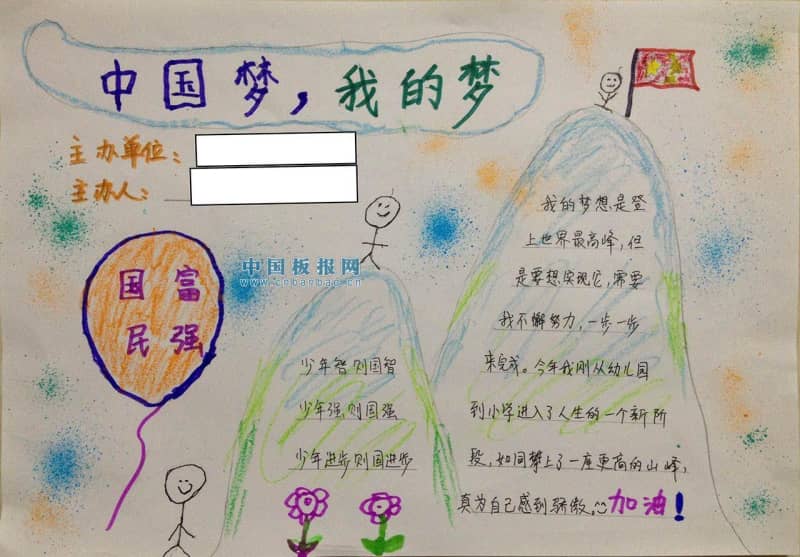 中国梦，我的梦
主办单位：
主办人：
中国板报网
www.cnbanbao.cn
国富
民强
少年智则国智
少年强则国强
少年进步则国进步
我的梦想是登
上世界最高峰，但
是要想实现它，需要
我不懈努力，一步一步
来完成。今年我刚从幼儿园
到小学进入了人生的一个新阶
段，如同攀上了一座更高的山峰，
真为自己感到骄傲。加油！